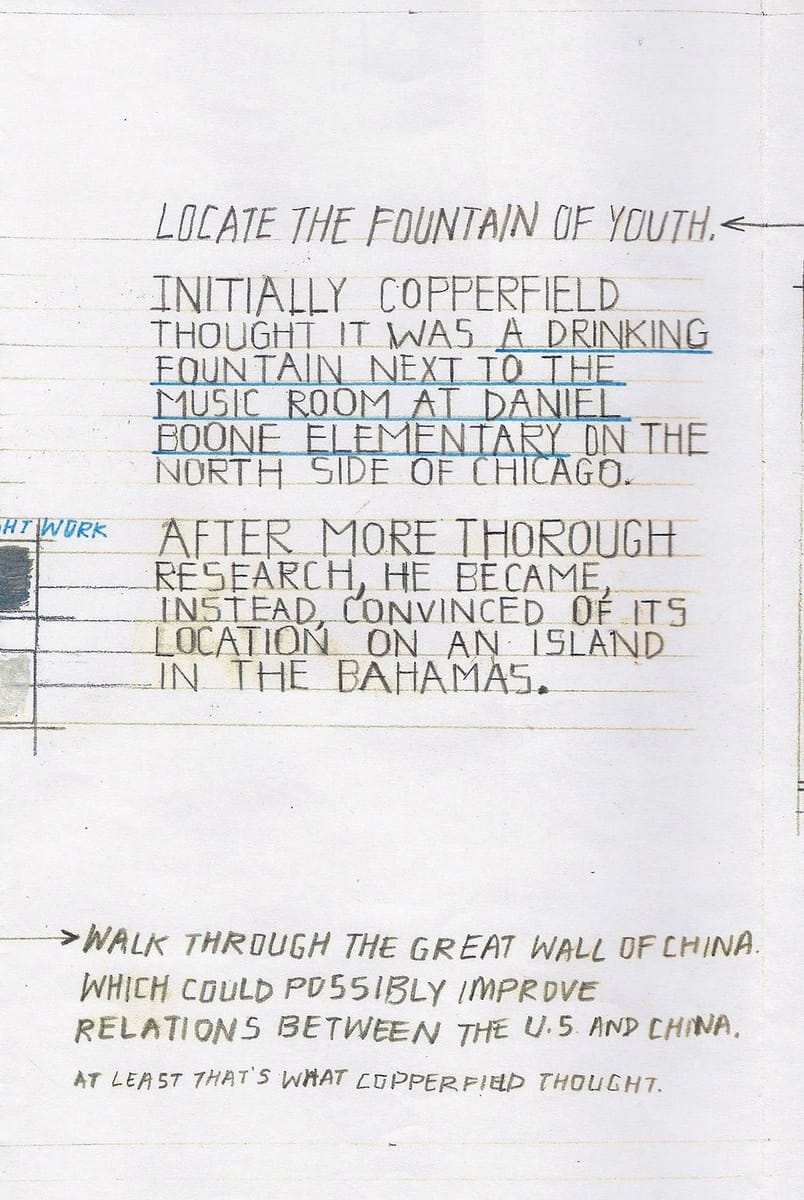 LOCATE THE FOUNTAIN OF YOUTH.
INITIALLY COPPERFIELD
THOUGHT IT WAS A DRINKING
FOUNTAIN NEXT TO THE
MUSIC ROOM AT DANIEL
BOONE ELEMENTARY ON THE
NORTH SIDE OF CHICAGO.
HT WORK
AFTER MORE THOROUGH
RESEARCH, HE BECAME,
INSTEAD, CONVINCED OF ITS
LOCATION ON AN ISLAND
IN THE BAHAMAS.
WALK THROUGH THE GREAT WALL OF CHINA.
WHICH COULD POSSIBLY IMPROVE
RELATIONS BETWEEN THE U.S. AND CHINA.
AT LEAST THAT'S WHAT COPPERFIELD THOUGHT.